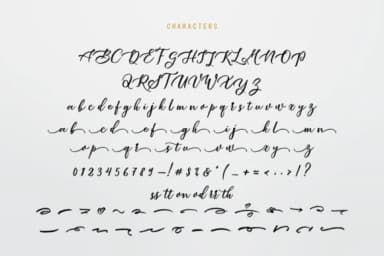 CHARACTERS
ABCDEFGHIJKLMNOP
QRSTUVWXYZ
abcdefghijklmnopqrstuvwxyz
abcdefghijklmn
opqrstuvwxyz
0123456789-!#$%&*(_-+=<..>)?
ss tt on od rr th